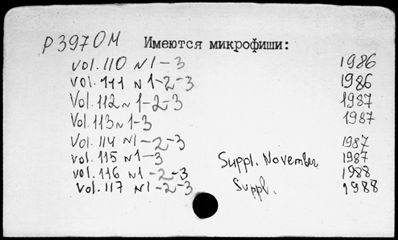 P3970M Имеются микрофиши:
vol. 110 N 1-3 1986
vol. 111 N 1-2-3 1986
Vol. 112 N 1-2-3 1987
Vol. 113 N 1-3 1987
Vol. 114 N1-2-3 1987
vol. 115 N1-3 Suppl. November 1987
vol. 116 N1-2-3 Suppl. 1988
vol. 117 N1-2-3 1988